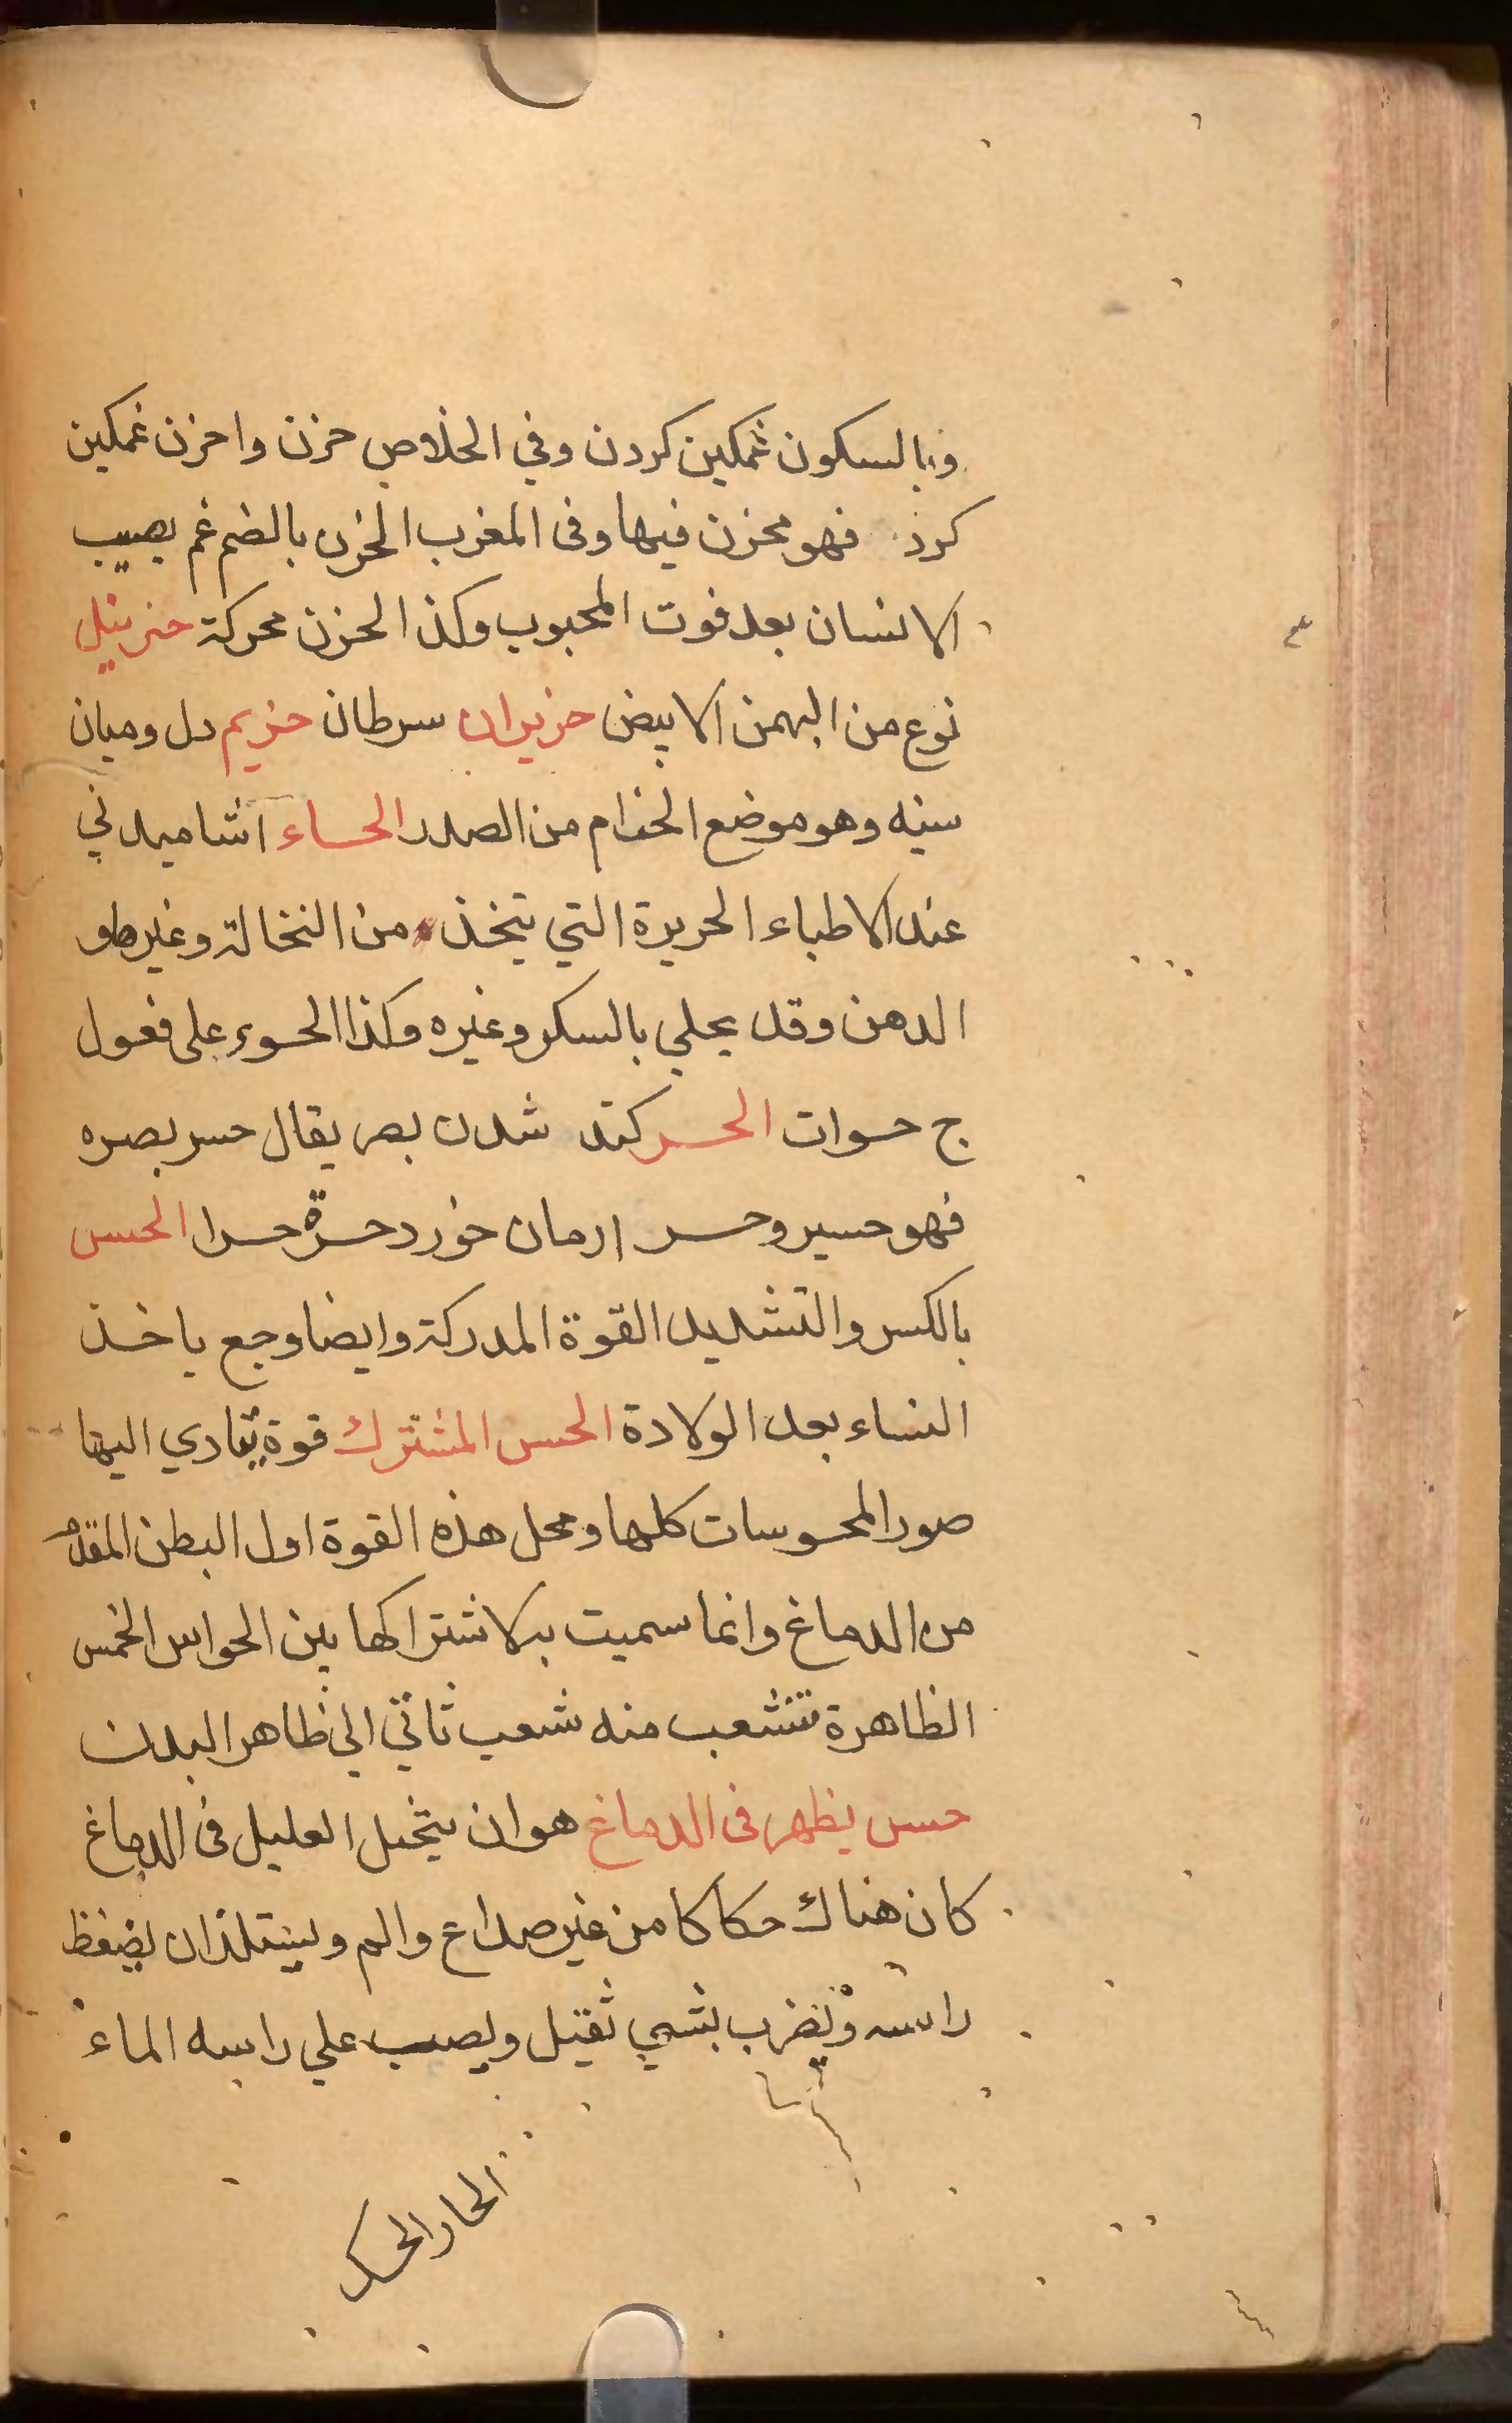 وبالسكون غمكين كردن وفي الخلاص حزن واحزن غمكين
كرد فهو محزن فيها وفى المغرب الحزن بالضم غم يصيب
الانسان بعد فوت المحبوب وكذا الحزن محركة حزنبل
نوع من البهمن الابيض حزيران سرطان حزيم دل وميان
سينه وهو موضع الحزام من الصدر الحساء آشاميدني
عند الاطباء الحريرة التي تتخذ من النخالة وغيرها و
الدهن وقد يحلي بالسكر وغيره وكذا الحسوء على فعول
ج حسوات الحسر كند شدن بصر يقال حسر بصره
فهو حسير وحسر ارمان خورد حسرة حسرا الحس
بالكسر والتشديد القوة المدركة وايضا وجع ياخذ
النساء بعد الولادة الحس المشترك قوة يتادي اليها
صور المحسوسات كلها ومحل هذه القوة اول البطن المقدم
من الدماغ وانما سميت به لاشتراكها بين الحواس الخمس
الظاهرة تتشعب منه شعب تاتي الي ظاهر البدن
حس يظهر فى الدماغ هو ان يتخيل العليل فى الدماغ
كان هناك حكاكا من غير صداع والم ويستلذ ان يضغظ
راسه ويضرب بشي ثقيل ويصب علي راسه الماء
الحار الحسك